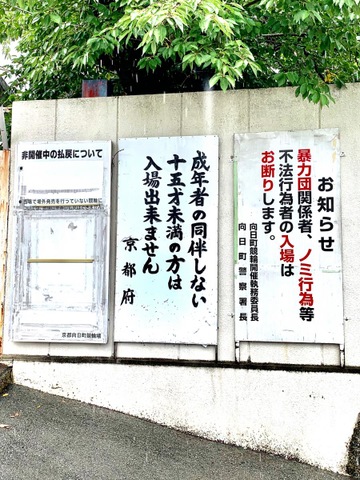 お知らせ
暴力団関係者、ノミ行為等
不法行為者の入場は
お断りします。
向日町競輪開催執務委員長
向日町警察署長
成年者の同伴しない
十五才未満の方は
入場出来ません
京都府
非開催中の払戻について
京都向日町競輪場